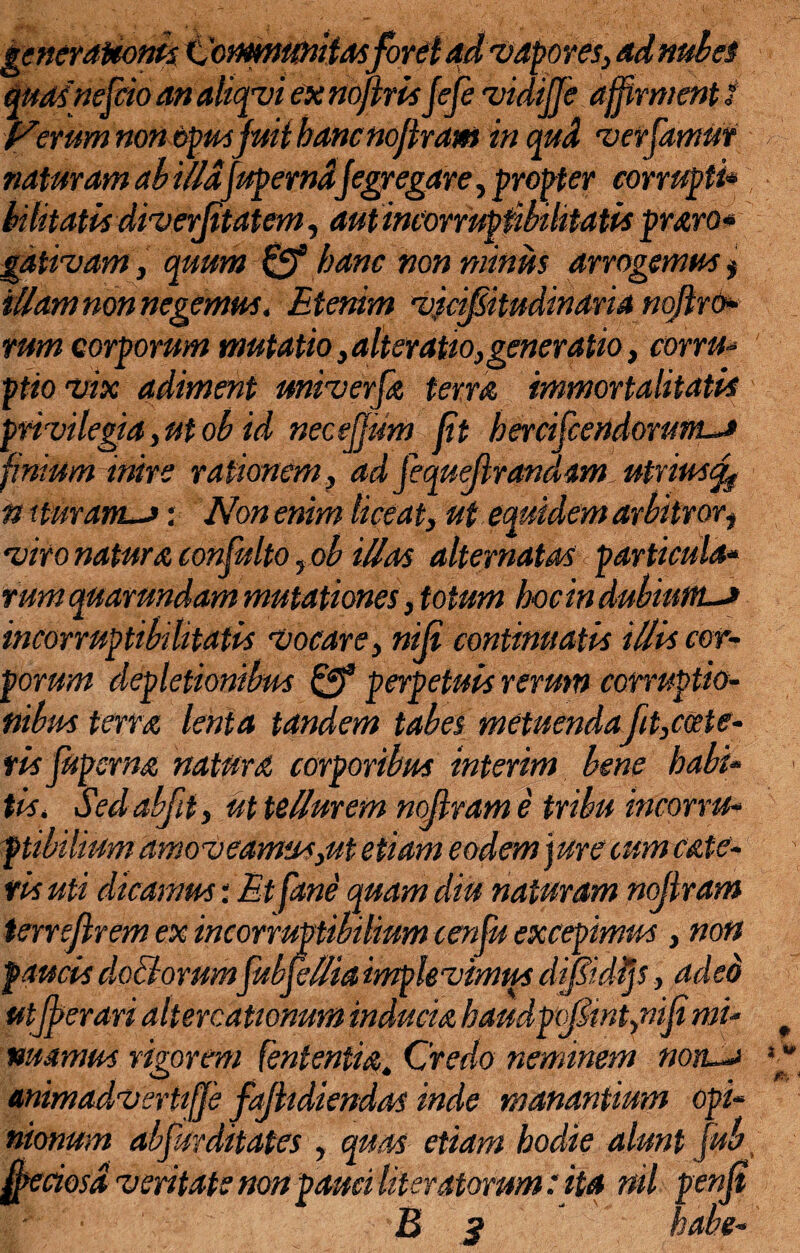 generationis Communitas foret ad vapores, ad nubes
quas nescio an aliqvi ex nostris sese vidisse affirment?
Verum non opus fuit hanc nostram in quâ versamur
naturam ab illâ supernâ segregare, propter corrupti-
bilitatis diversitatem, aut incorruptibilitatis præro-
gativam, quum & hanc non minùs arrogemus,
illam non negemus. Etenim vicissitudinaria nostro-
rum corporum mutatio, alteratio, generatio, corru-
ptio vix adiment universæ terræ immortalitatis
privilegia, ut ob id necessum sit herciscendorum
finium inire rationem, ad sequestrandam utriusq;
naturam: Non enim liceat, ut equidem arbitror,
viro naturæ consulto, ob illas alternatas particula-
rum quarundam mutationes, totum hoc in dubium
incorruptibilitatis vocare, nisi continuatis illis cor-
porum depletionibus & perpetuis rerum corruptio-
nibus terræ lenta tandem tabes metuenda sit, cœte-
ris supernæ naturæ corporibus interim bene habi-
tis. Sed absit, ut tellurem nostram è tribu incorru-
ptibilium amoveamus, ut etiam eodem jure cum cæte-
ris uti dicamus: Et sanè quam diu naturam nostram
terrestrem ex incorruptibilium censu excepimus, non
paucis doctorum subsellia implevimus dissidijs, adeò
ut sperari altercationum induciæ haud possint, nisi mi-
nuamus rigorem sententiæ. Credo neminem non
animadvertisse fastidiendas inde manantium opi-
nionum absurditates, quas etiam hodie alunt sub
speciosâ veritate non pauci literatorum: ita nil pensi
B 3 habe-